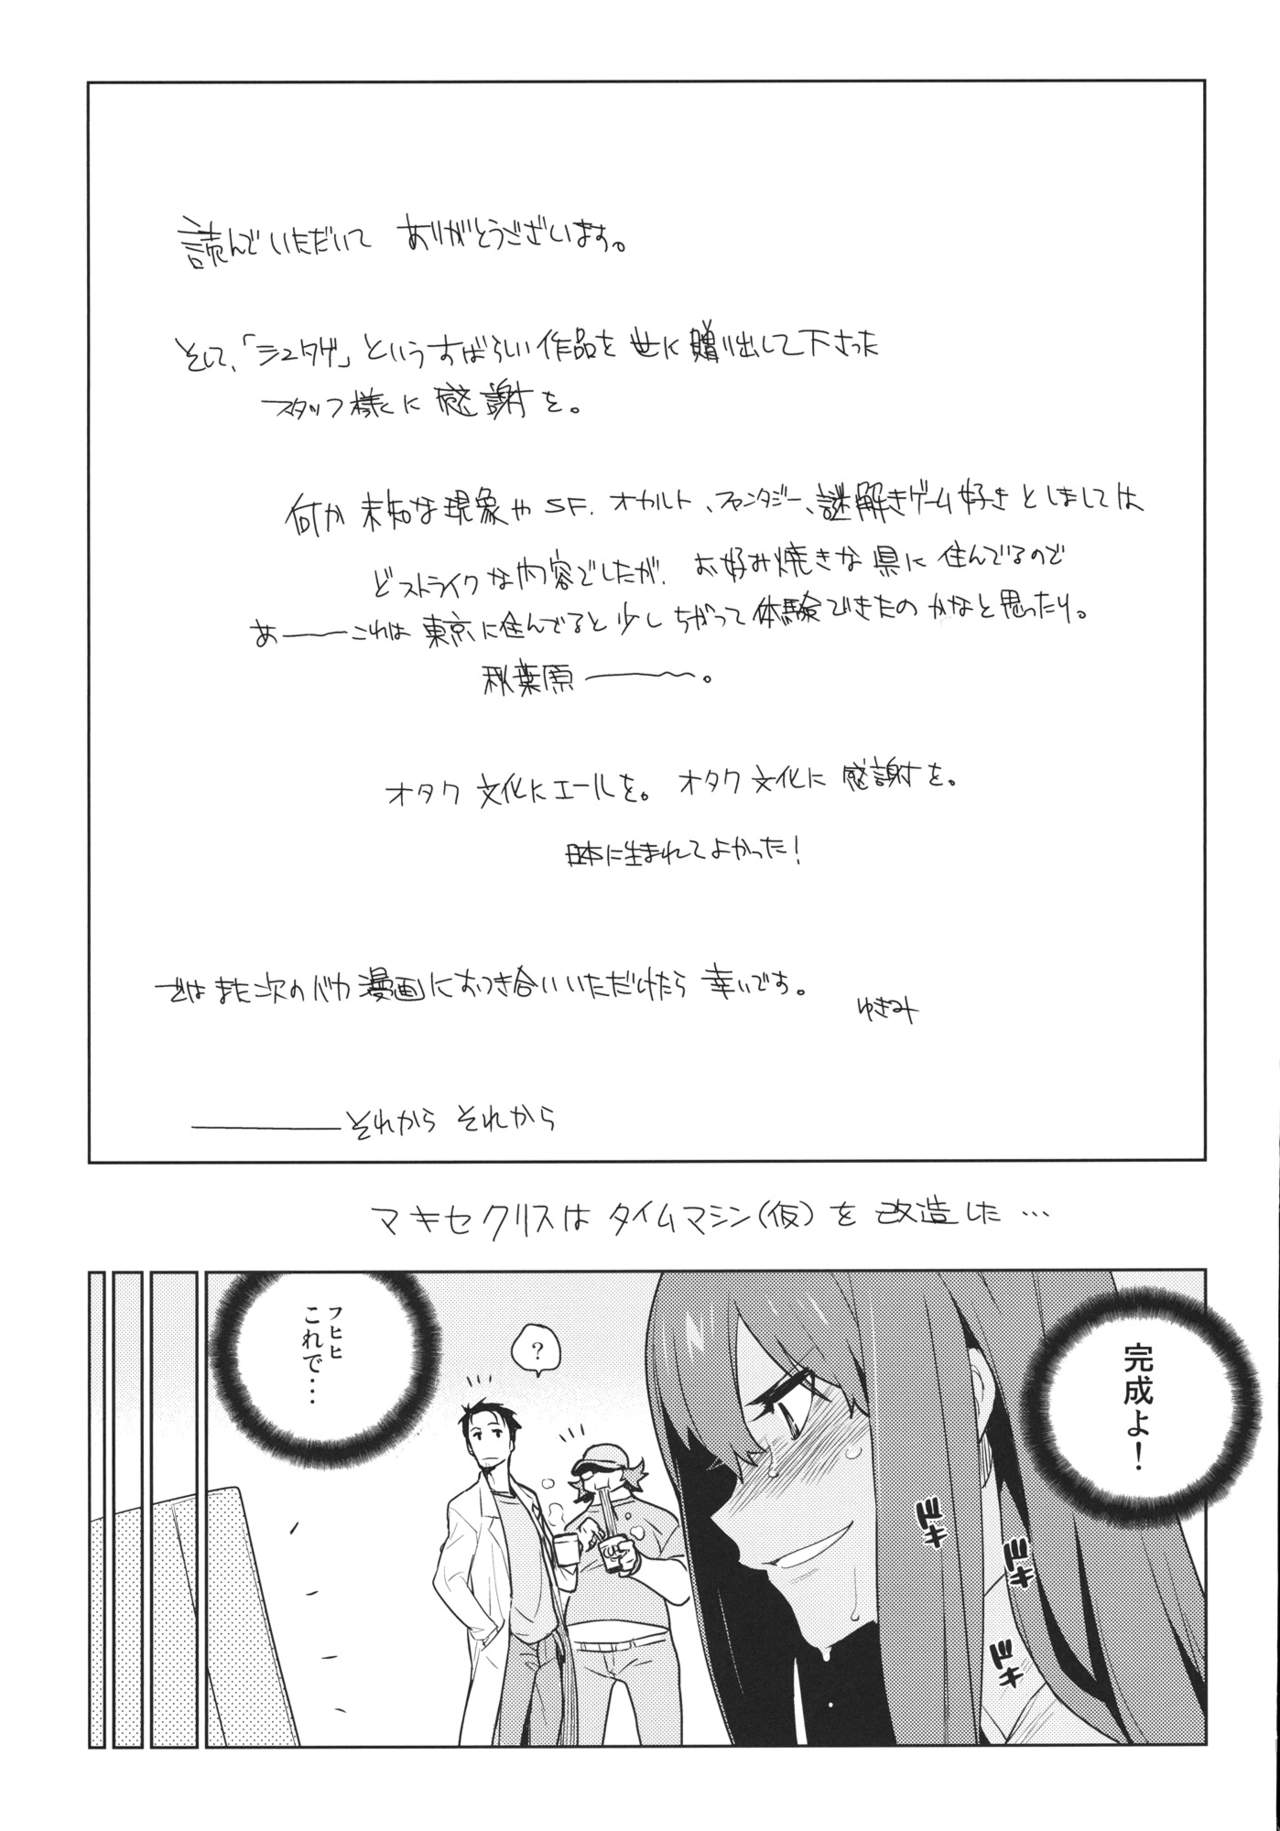 読んでいただいて ありがとうございます。
そして、「シュタゲ」というすばらしい作品を世に贈り出して下さった
スタッフ様に感謝を。
何か未知な現象やSF、オカルト、ファンタジー、謎解きゲーム好きとしましては
どストライクな内容でしたが、お好み焼きな県に住んでるので
あ――これは東京に住んでると少しちがって体験できたのかなと思ったり。
秋葉原――〜。
オタク文化にエールを。オタク文化に感謝を。
日本に生まれてよかった!
ではまた次のバカ漫画におつき合いいただけたら幸いです。
ゆきみ
―――それから それから
マキセクリスはタイムマシン(仮)を改造した…
完成よ!
ドキ
ドキ
ドキ
?
フヒヒ
これで・・・